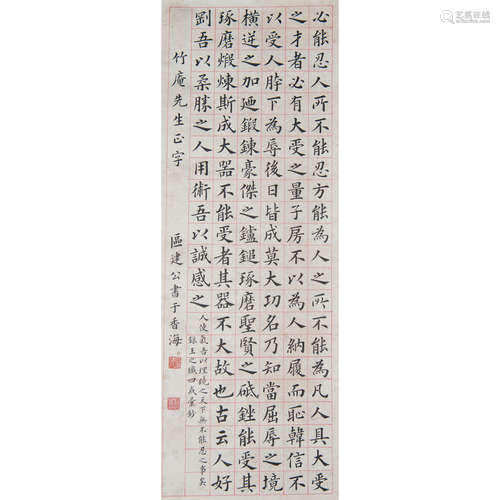 必能忍人所不能忍方能為人之所不能為凡人具大受
之才者必有大受之量子房不以為人納履而恥韓信不
以受人胯下為辱後日皆成莫大功名乃知當屈辱之境
橫逆之加廼鍛鍊豪傑之鑪鎚琢磨聖賢之砥銼能受其
琢磨煅煉斯成大器不能受者其器不大故也古云人好
剛吾以柔勝之人用術吾以誠感之
人使氣吾以理之天下無不能忍之事矣
錄王之
竹庵先生正字 區建公書于香海